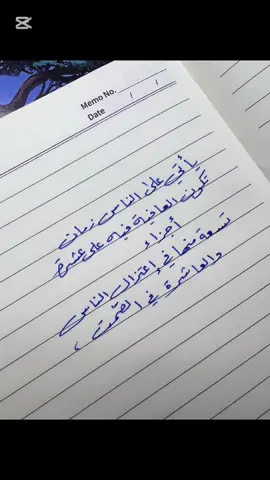 Memo No.
Date / /
يأتي على الناس زمان
تكون العافية فيه على عشرة
أجزاء
تسعة منها في إعتزال الناس
والعاشرة في الصّمت ،